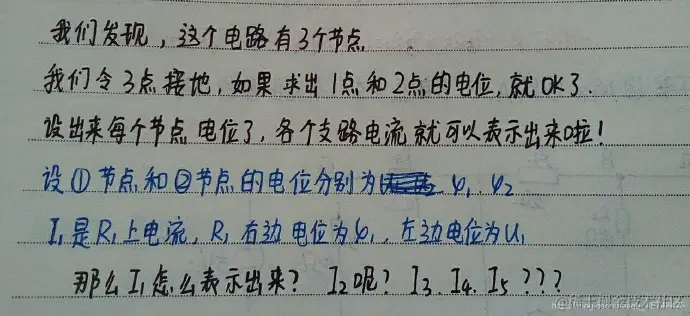 我们发现，这个电路有3个节点
我们令3点接地，如果求出1点和2点的电位，就OK了.
设出来每个节点电位了，各个支路电流就可以表示出来啦！
设①节点和②节点的电位分别为 φ₁. φ₂
I₁是R₁上电流，R₁右边电位为φ₁，左边电位为U₁
那么I₁怎么表示出来？ I₂呢？ I₃. I₄. I₅ ？？？